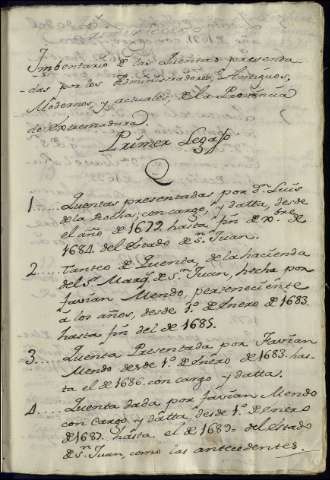 Imbentario de las Quentas presenta
-das por los Administradores, Antiguos,
Modernos, y actuales, de la Provincia
de Extremadura.
Primer Legajo
1..... Quentas presentadas por Dn. Luis
de la con cargo, y datta, desde
el año de 1672 hasta fin de Xbre.
1684. del Estado de Sn. Juan.
2..... Tanteo de Quenta, de la hacienda
del Sr. Marqs. de Sn. Juan, hecha por
favian Mendo, perteneciente
a los años, desde 1º. de Enero de 1683.
hasta fin del de 1685.
3..... Quenta Presentada por Favian
Mendo desde 1º. de Enero de 1683. has
ta el de 1686. con cargo, y datta.
4..... Quenta dada por favian Mendo
con Cargo, y datta, desde 1º. de Enero
de hasta el de del estado
de Sn. Juan, como las antecedentes.